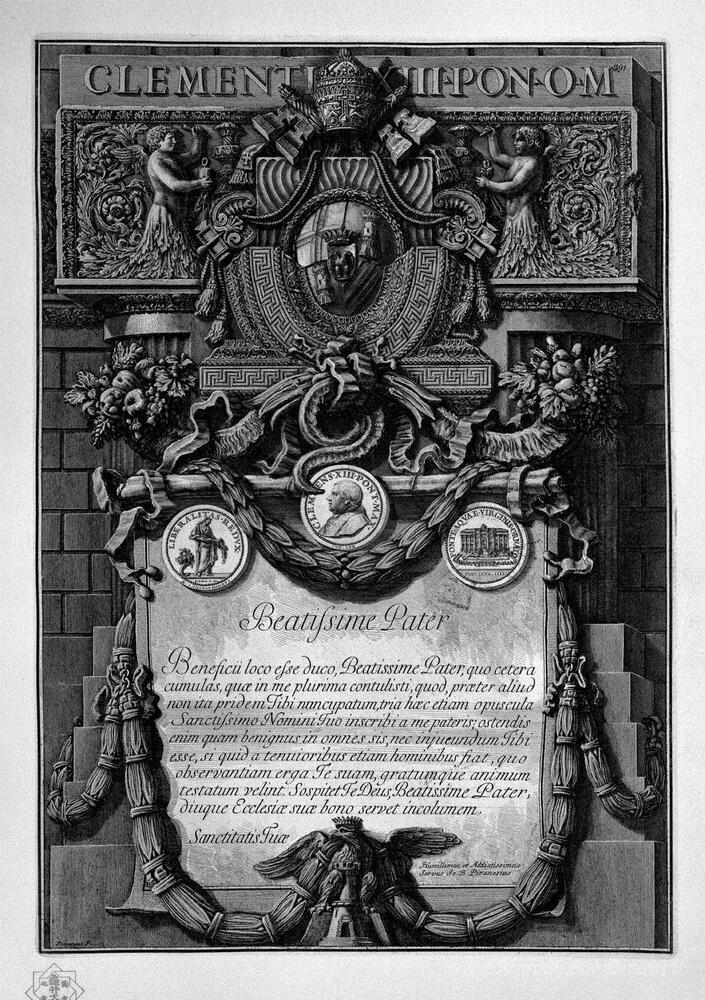 CLEMENTI XIII·PON·O·M
391
LIBERALITAS·REDUX
CLEMENS·XIII·PONT·M·A·X
FONTE AQUAE VIRGINIS ORNATO
Beatiſsime Pater
Beneficii loco eſse duco, Beatissime Pater, quo cetera
cumulas, quæ in me plurima contulisti, quod, præter aliud
non ita pridem Tibi nuncupatum, tria hæc etiam opuscula
Sanctiſsimo Nomini Tuo inscribi a me pateris; ostendis
enim quam benignus in omnes sis, nec injucundum Tibi
esse, si quid a tenuioribus etiam hominibus fiat, quo
observantiam erga Te suam, gratumque animum
testatum velint. Sospitet Te Deus, Beatissime Pater,
diuque Ecclesiæ suæ bono servet incolumem.
Sanctitatis Tuæ
Humillimus, et Addictissimus
Servus Jo. B. Piranesius